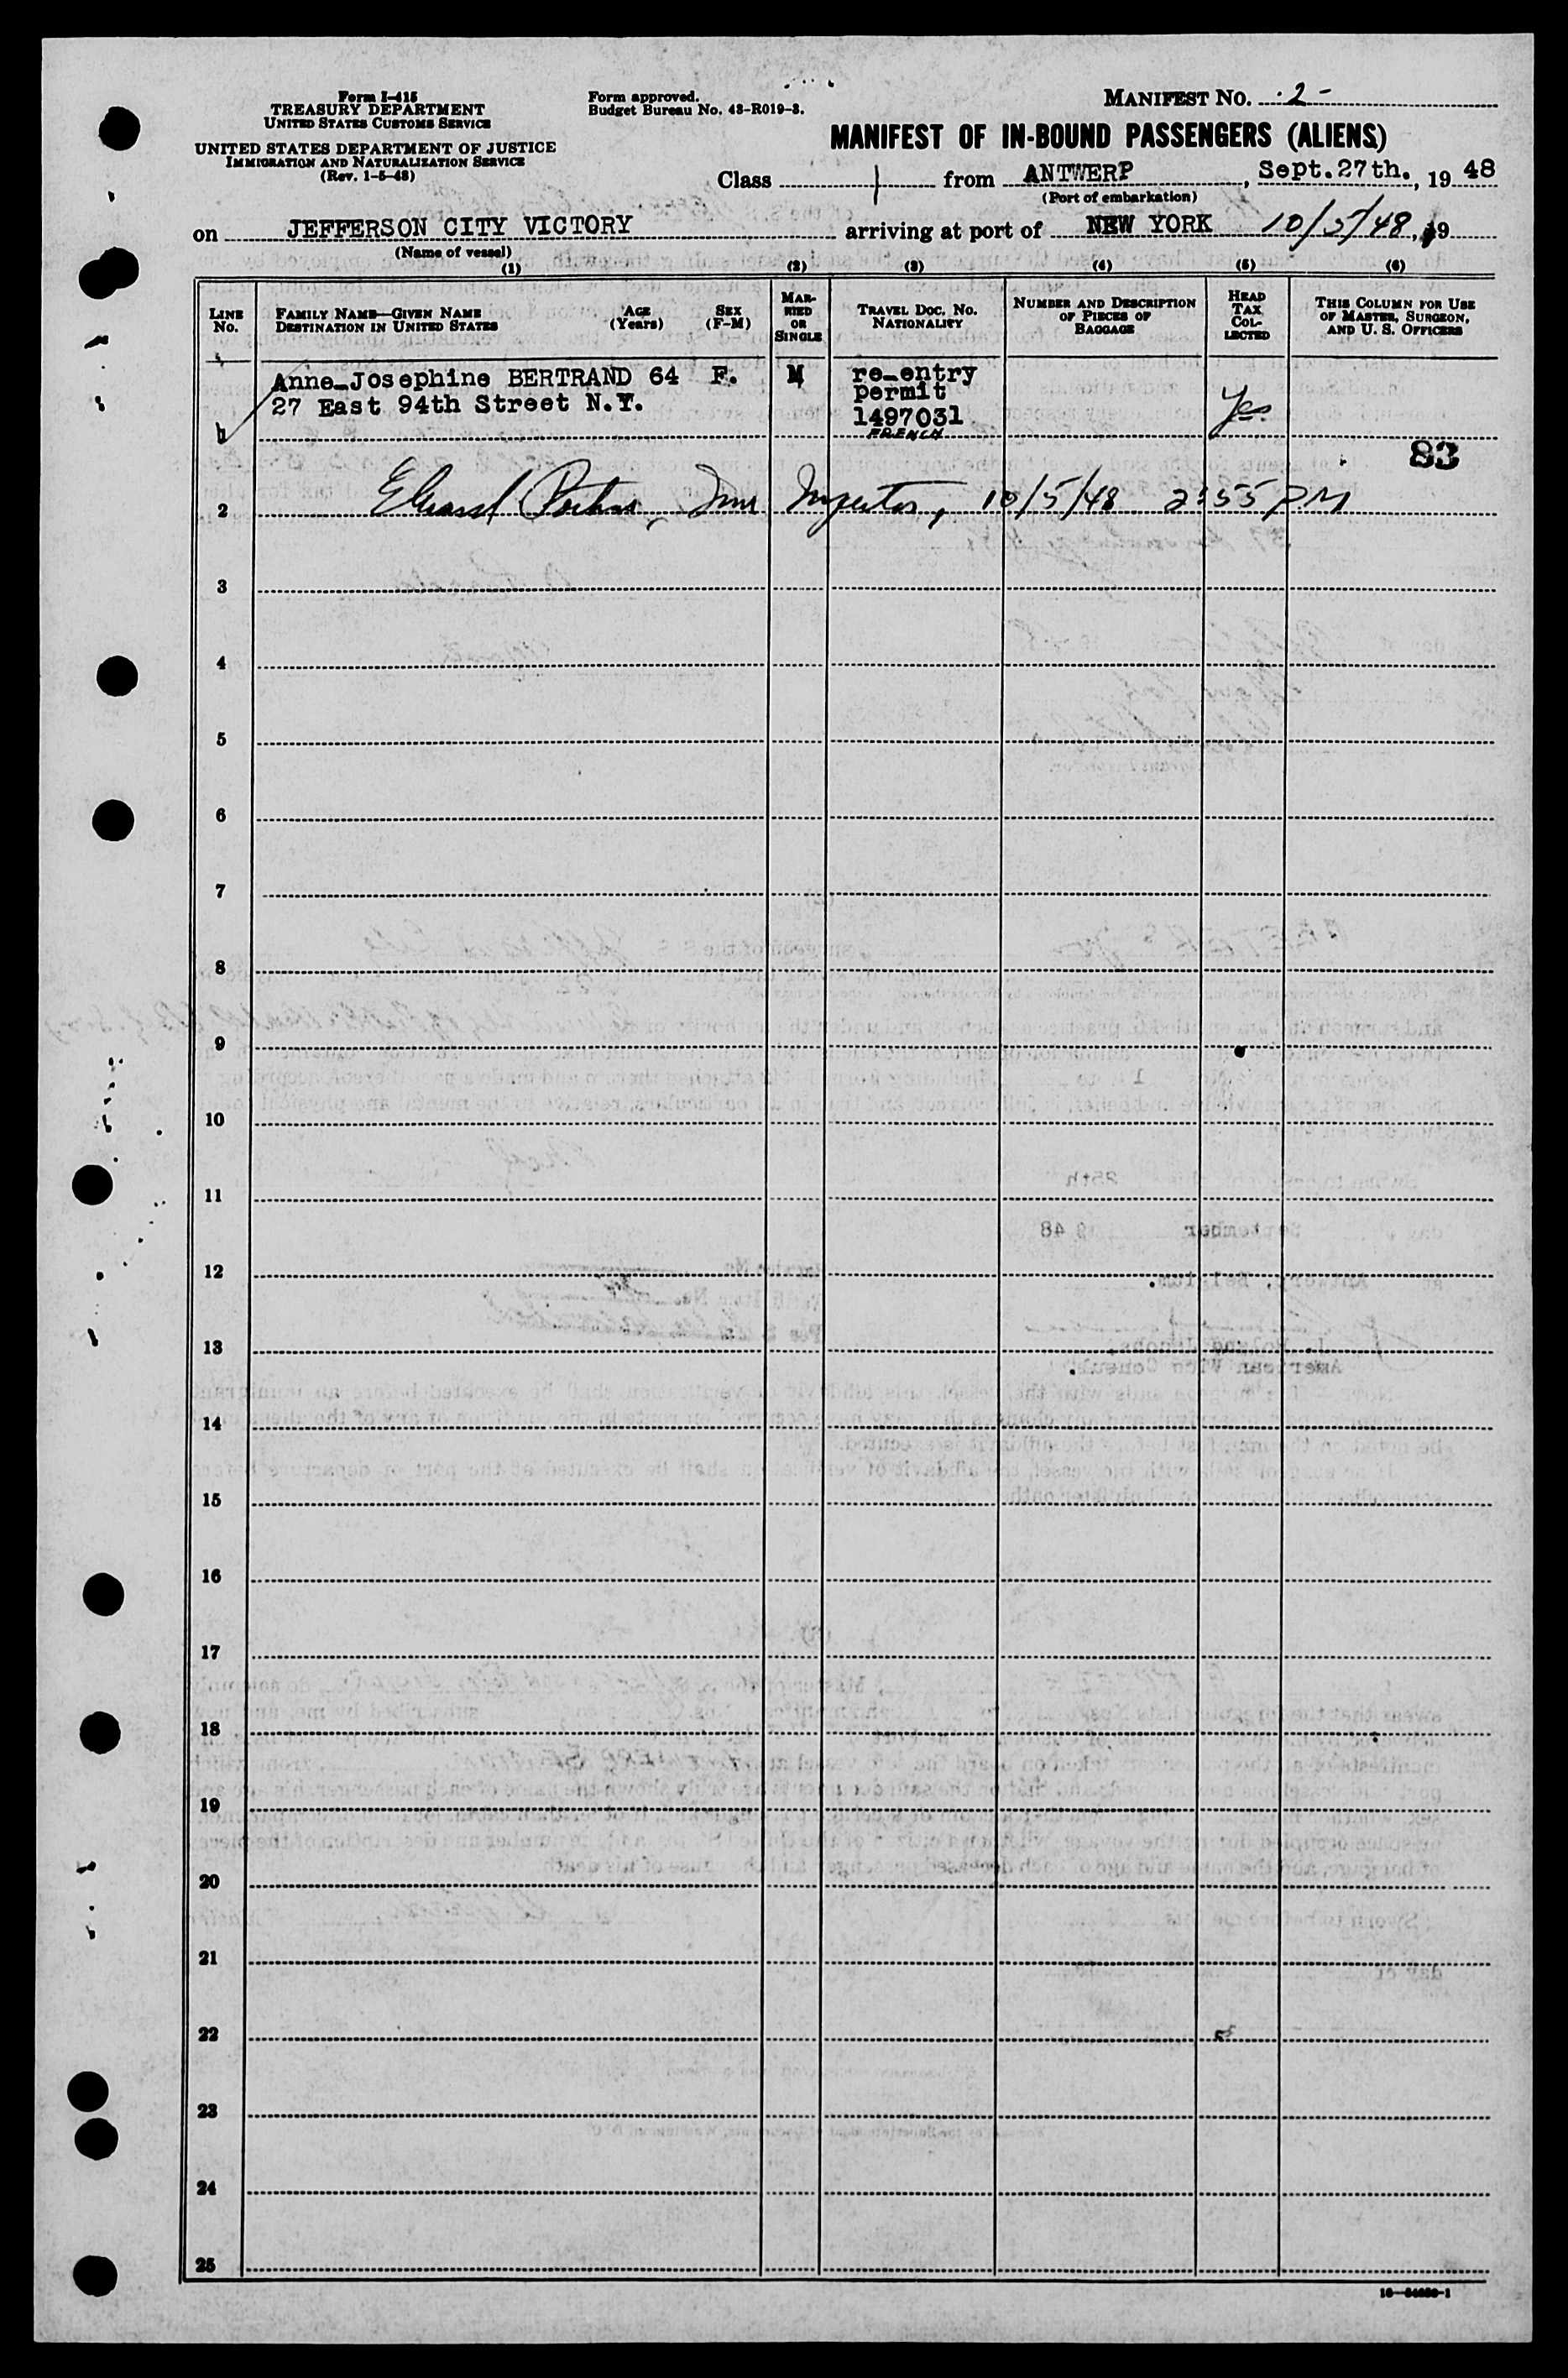 Form I-415
TREASURY DEPARTMENT
UNITED STATES CUSTOMS SERVICE
UNITED STATES DEPARTMENT OF JUSTICE
IMMIGRATION AND NATURALIZATION SERVICE
(Rev. 1-5-48)
Form approved.
Budget Bureau No. 43-R019-3.
MANIFEST NO. 2-
MANIFEST OF IN-BOUND PASSENGERS (ALIENS)
Class from ANTWERP, Sept.27th., 19 48
(Port of embarkation)
on JEFFERSON CITY VICTORY arriving at port of NEW YORK 10/5/48, 19
(Name of vessel)
(1) (2) (3) (4) (5) (6)
LINE No.
FAMILY NAME—GIVEN NAME
DESTINATION IN UNITED STATES
AGE (Years)
SEX (F-M)
MARRIED OR SINGLE
TRAVEL DOC. NO. NATIONALITY
NUMBER AND DESCRIPTION OF PIECES OF BAGGAGE
HEAD TAX COLLECTED
THIS COLUMN FOR USE OF MASTER, SURGEON, AND U. S. OFFICERS
Anne-Josephine BERTRAND 64 F. M re-entry
27 East 94th Street N.Y. permit
1 1497031 Yes
FRENCH
83
2 Inspector, 10/5/48 2:55 PM
3
4
5
6
7
8
9
10
11
12
13
14
15
16
17
18
19
20
21
22
23
24
25